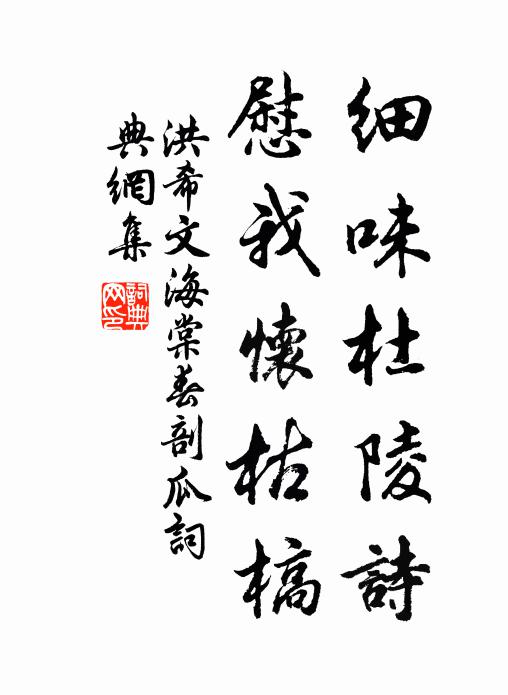 细味杜陵詩
慰我懷枯槁
洪希文海棠春剖瓜詞
典網集
詞典網印